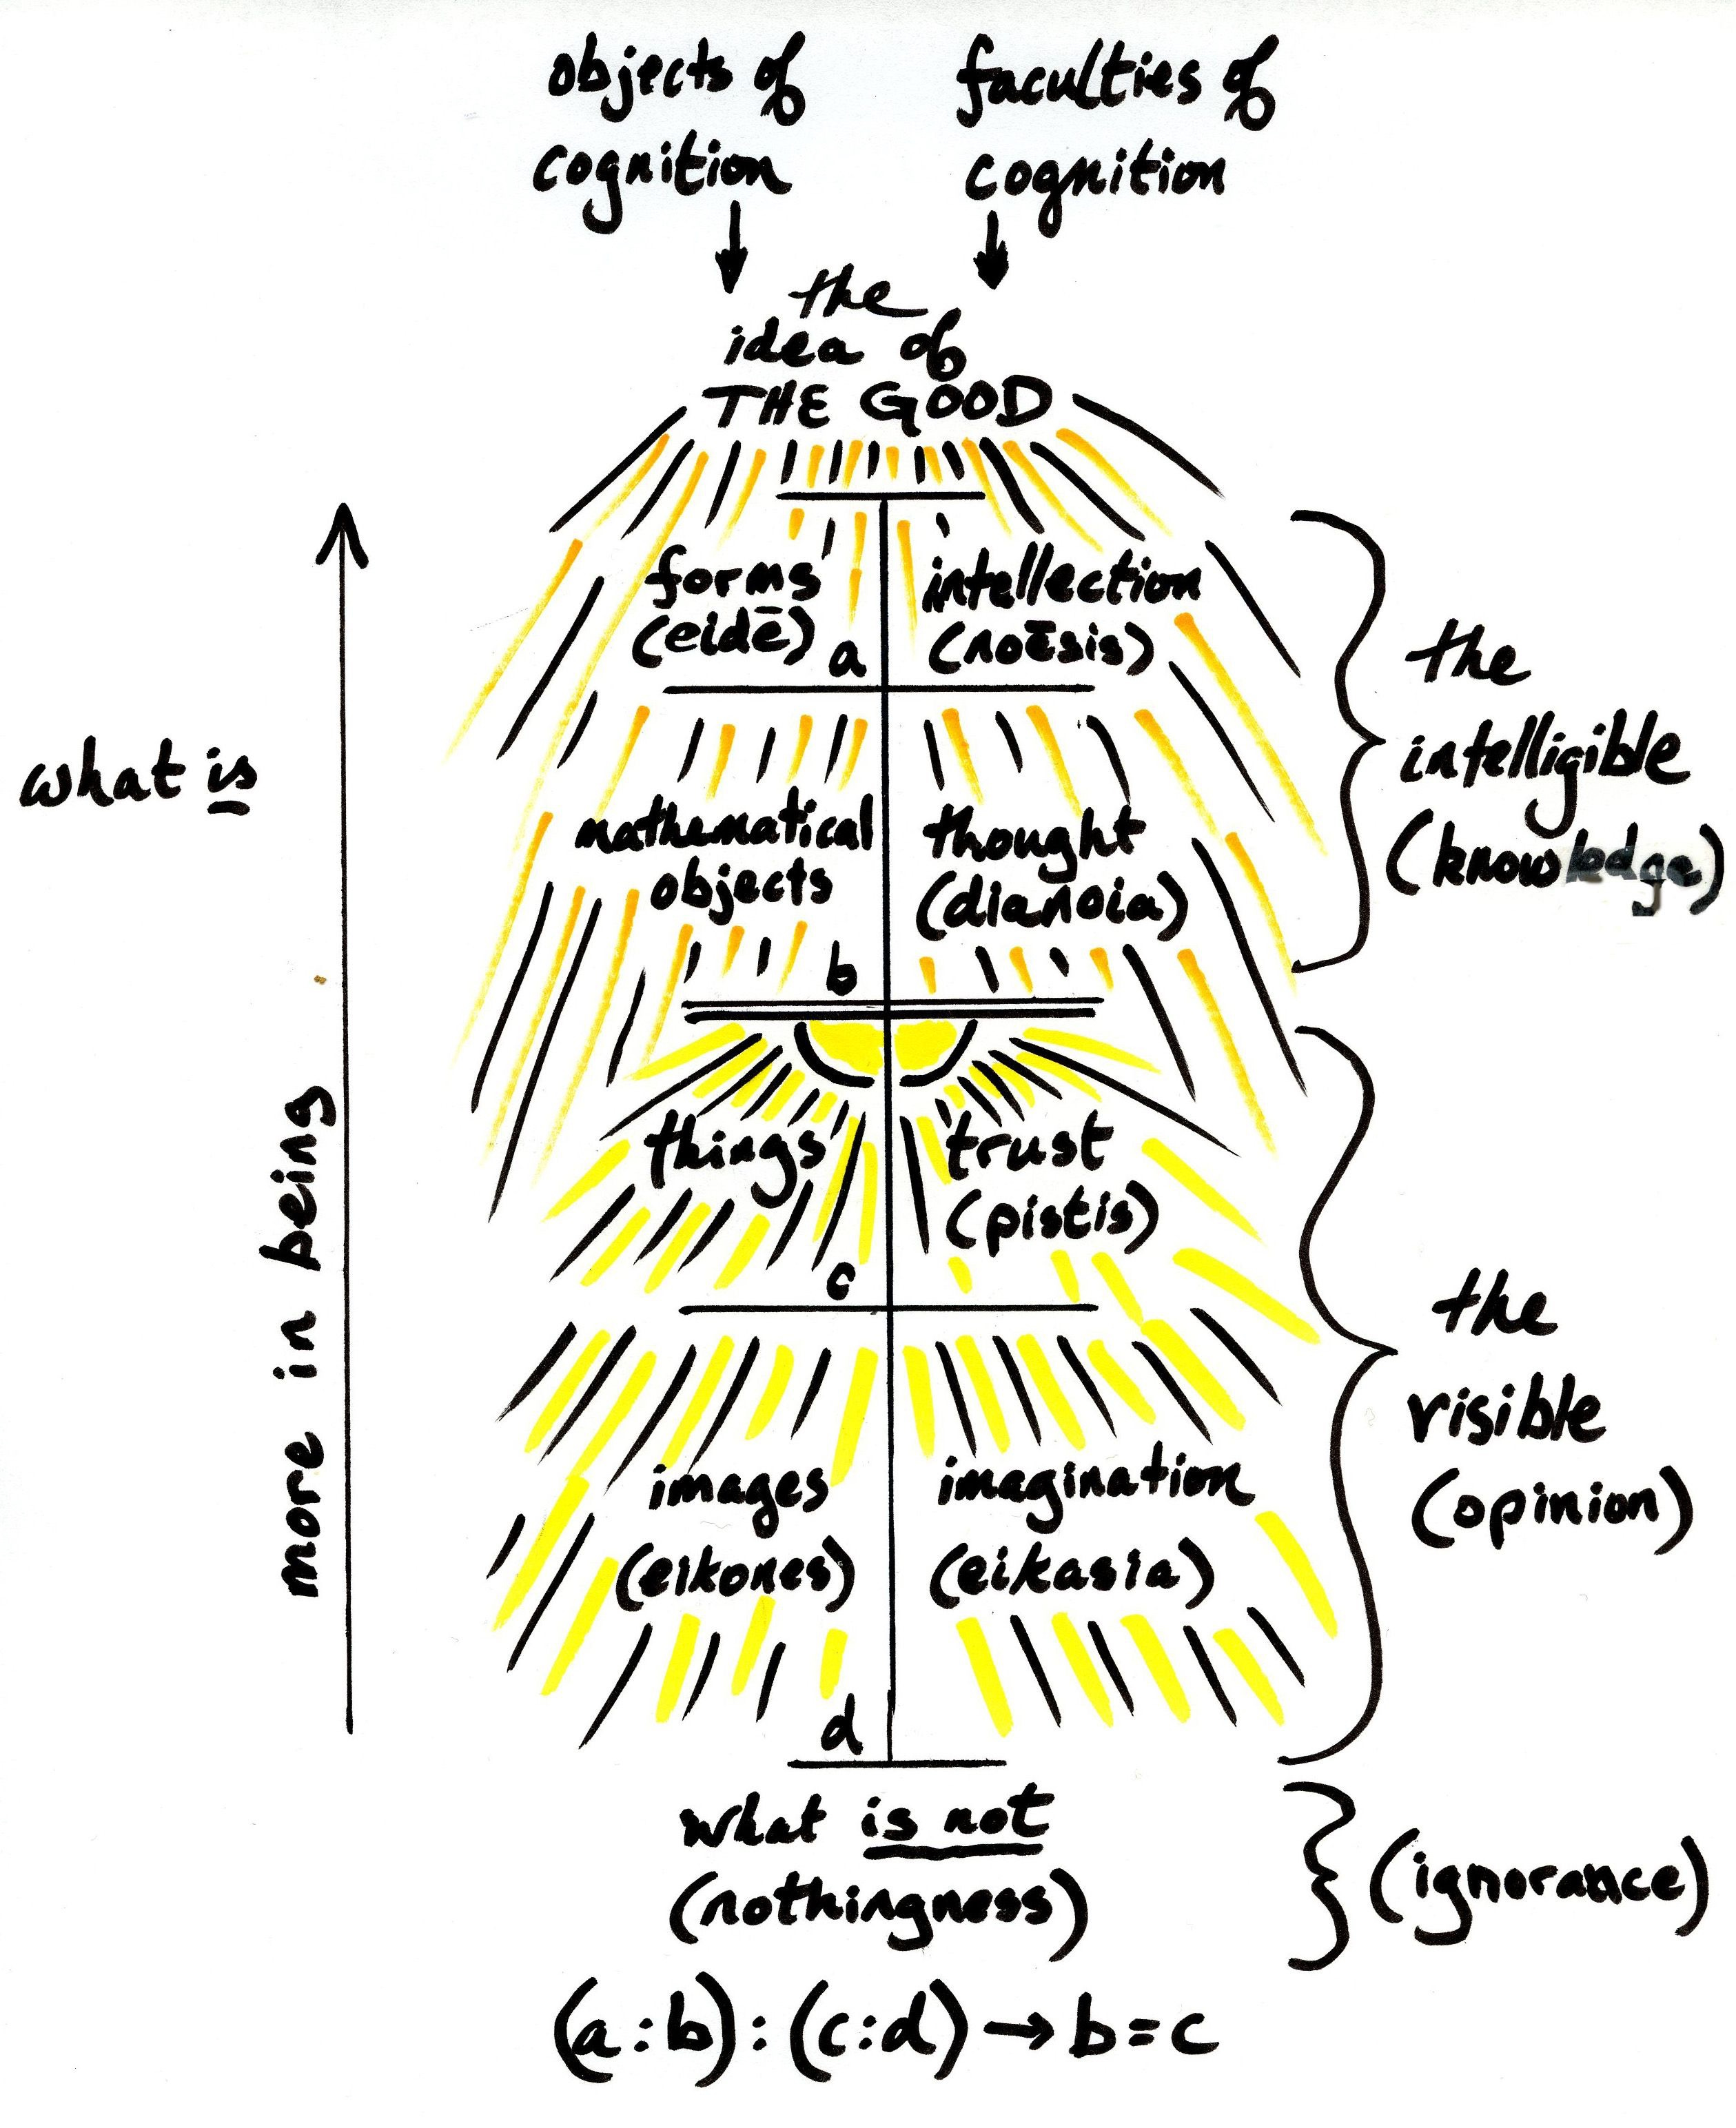 objects of
cognition
faculties of
cognition
the
idea of
THE GOOD
forms
(eidē)
a
intellection
(noēsis)
the
intelligible
(knowledge)
what is
mathematical
objects
b
thought
(dianoia)
more in being
things
c
trust
(pistis)
the
visible
(opinion)
images
(eikones)
d
imagination
(eikasia)
what is not
(nothingness)
(ignorance)
(a:b):(c:d)→b=c